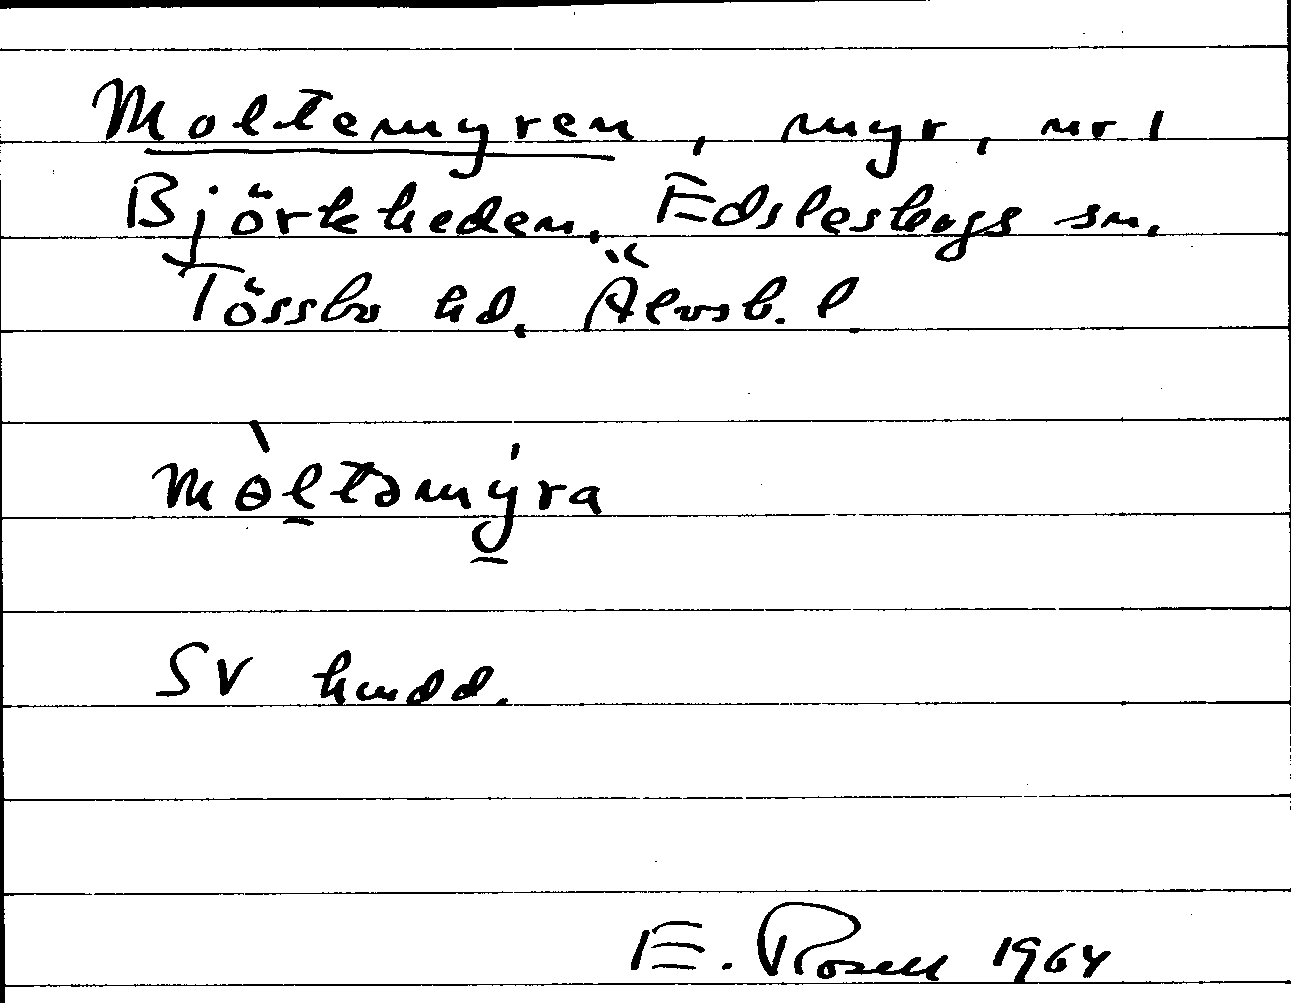 Moltemyren, myr, nr 1
Björkheden. Edsleskogs sn.
Tössbo hd. Älvsb. l.
mòltəmýra
SV hmdd.
E. Rosell 1964